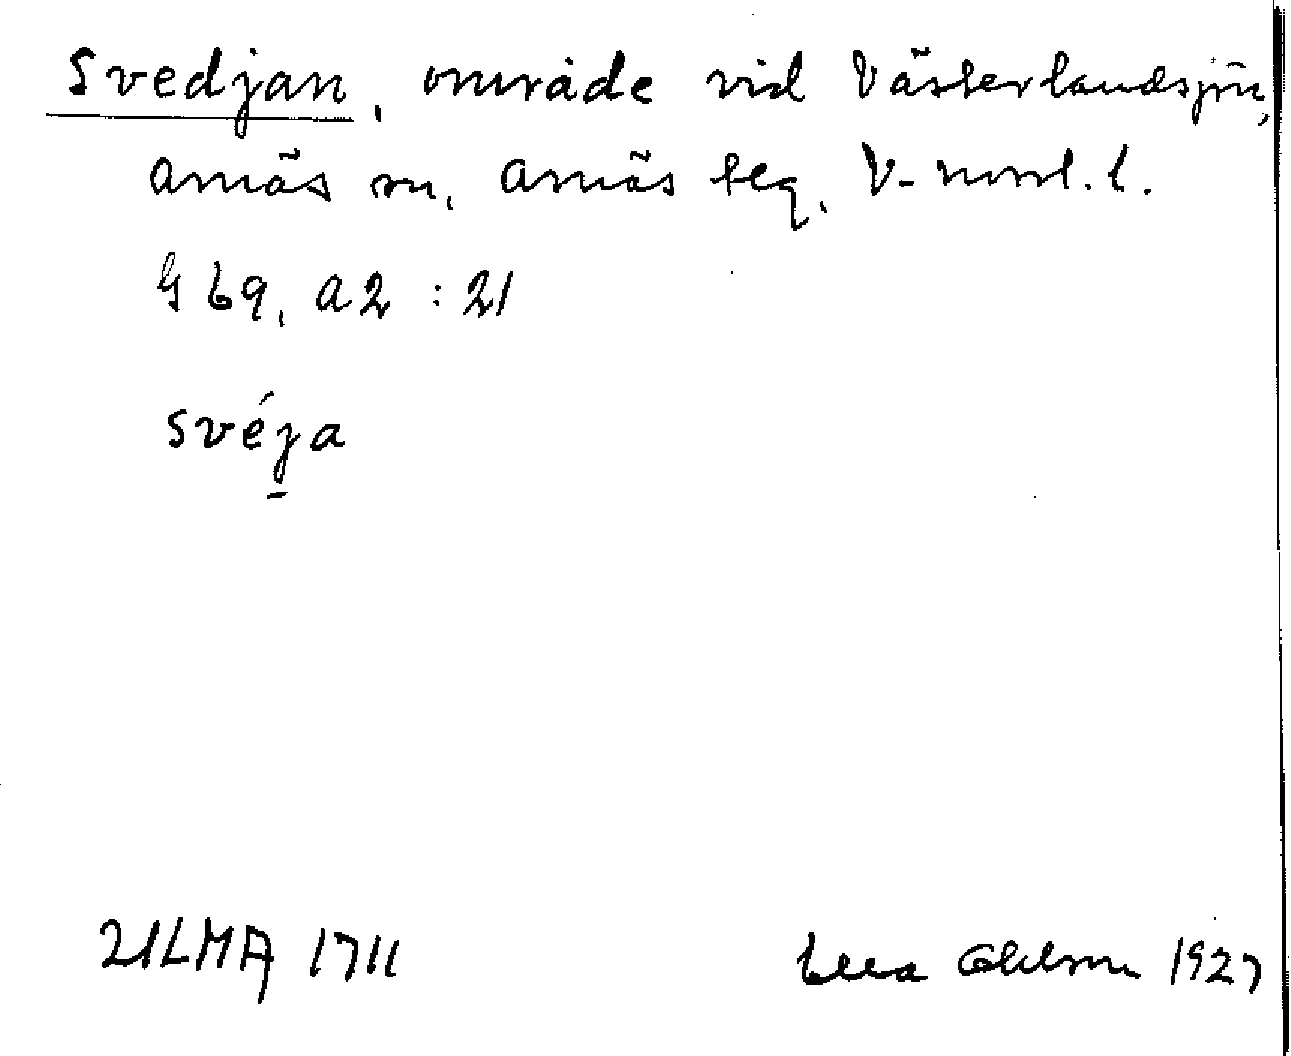 Svedjan, område vid Västerlandsjön,
Arnäs sn, Arnäs tlg, V-norrl. l.
G 69, A2 : 21
svéja
ULMA 1711
Ella Ohlson 1927